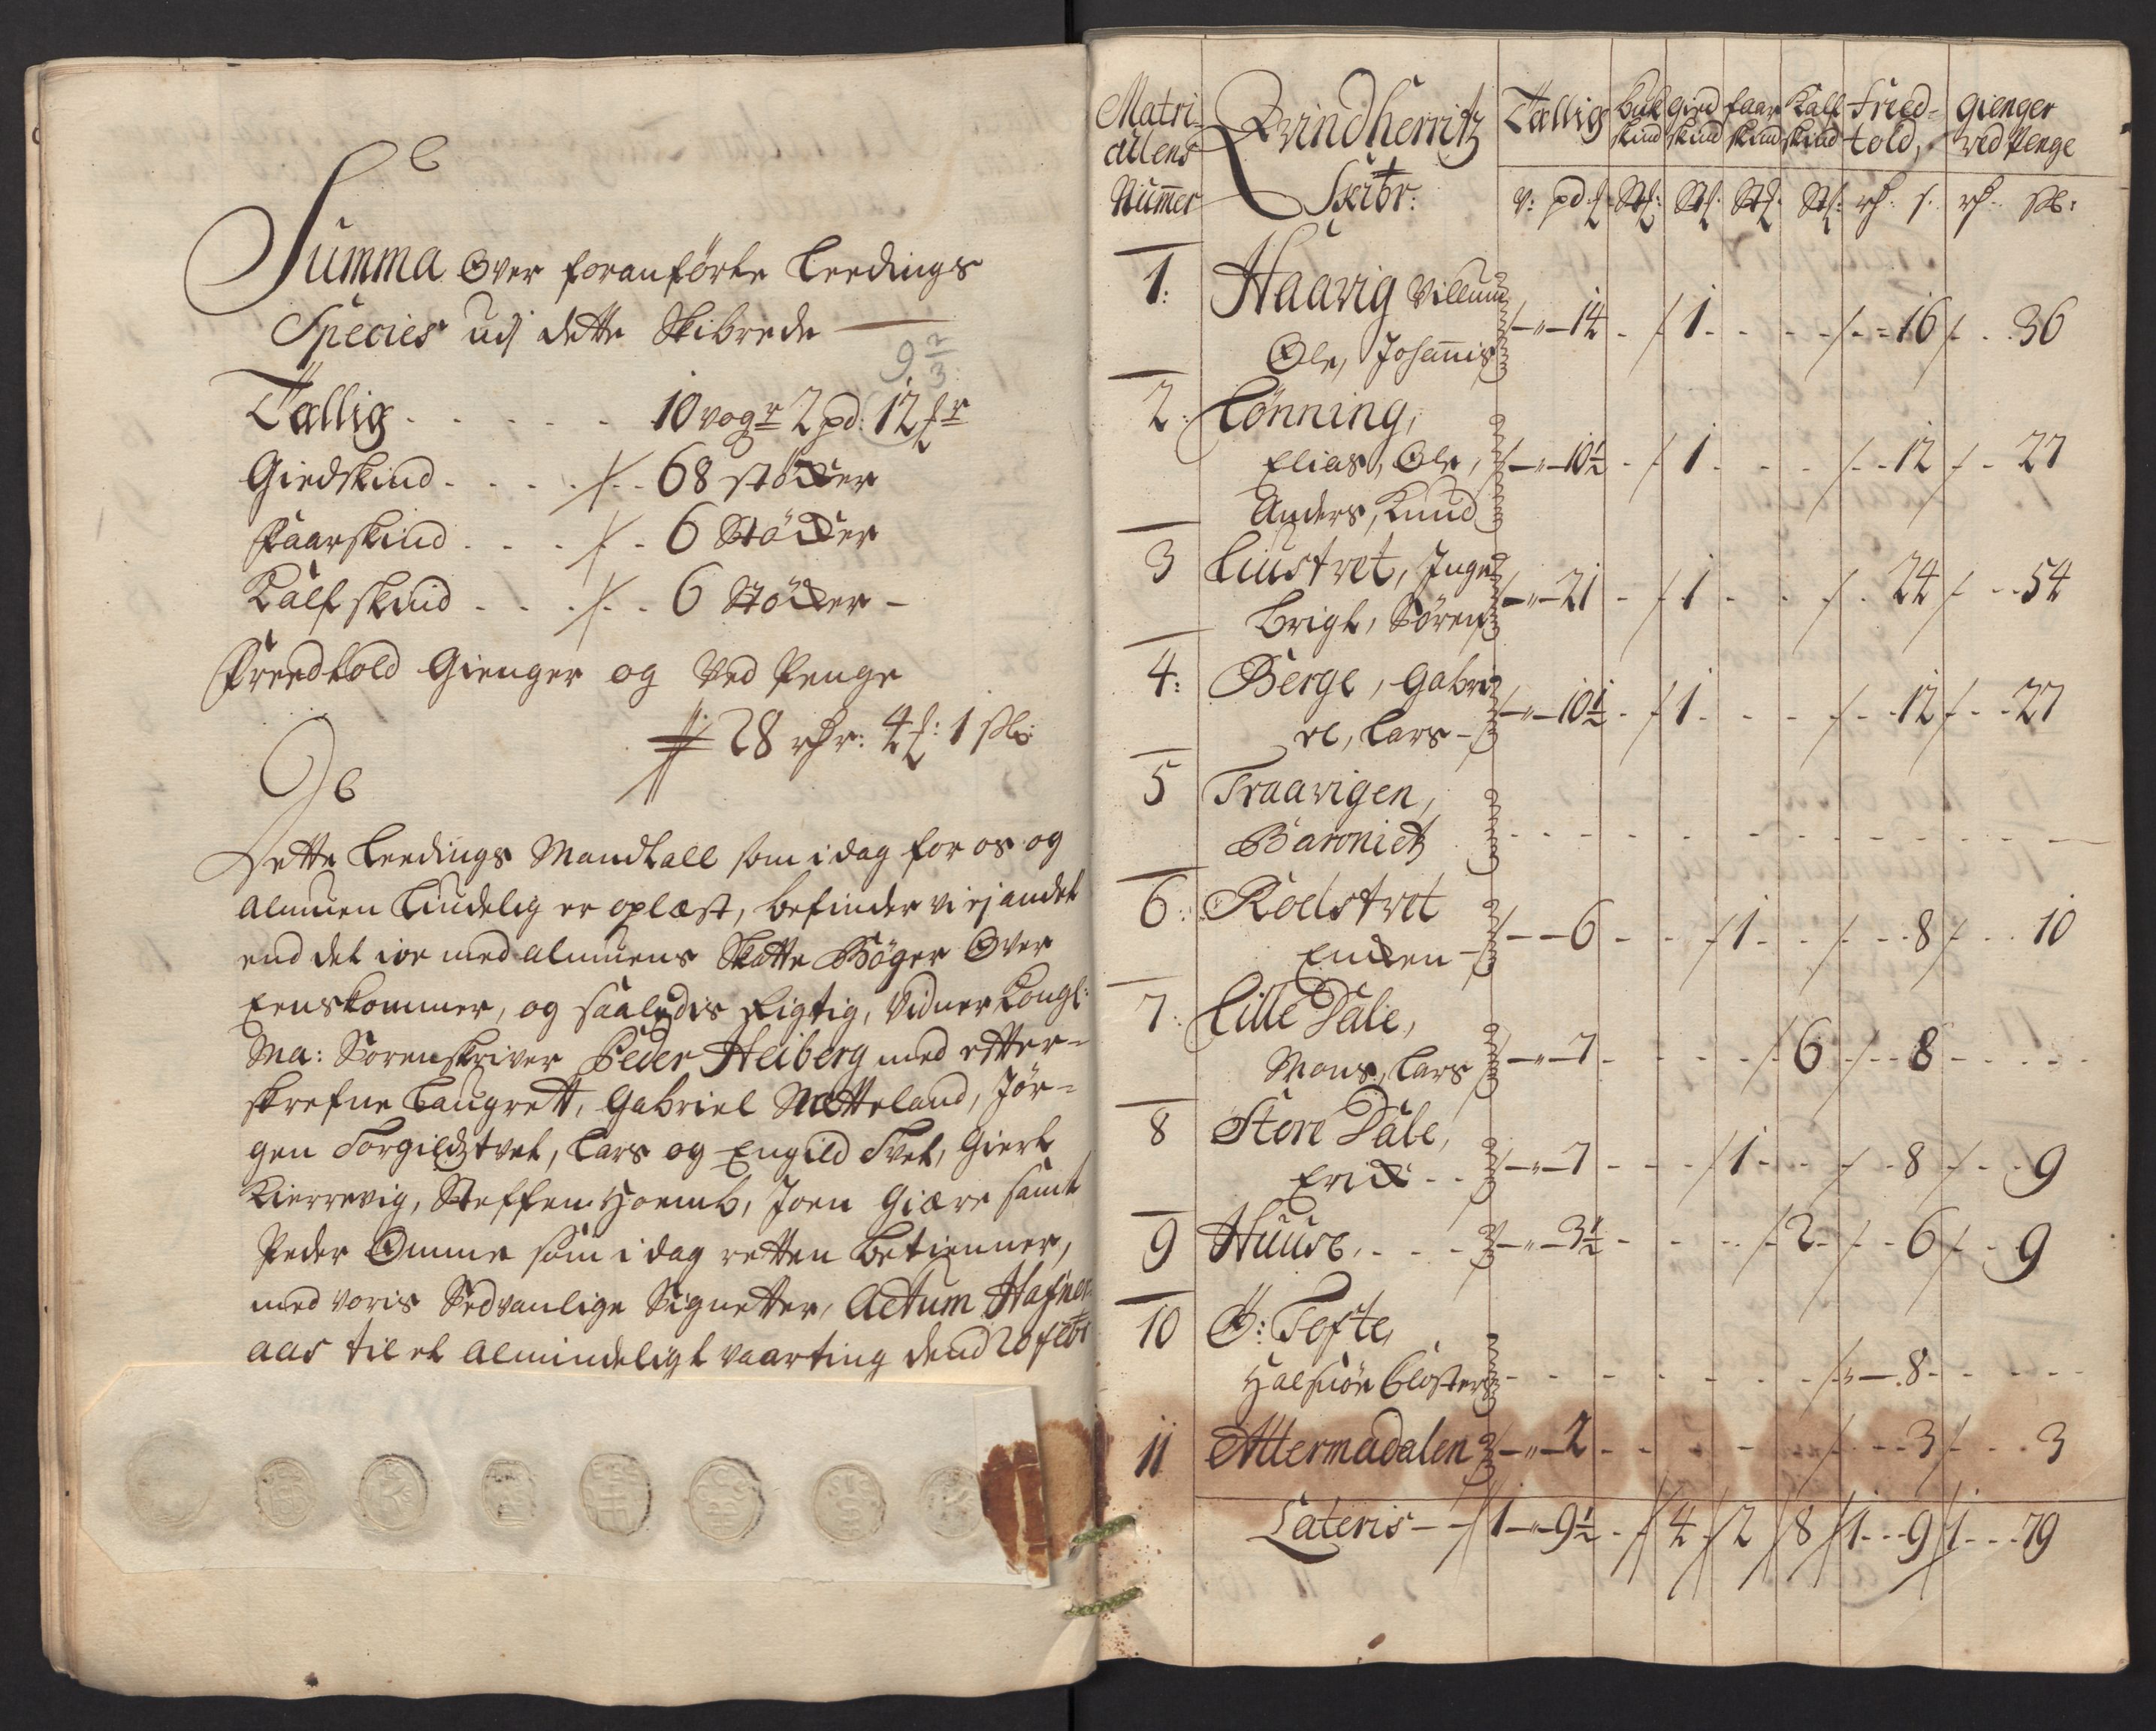 Summa Over foranförte Leedings
Species udj dette Skibrede
9 2/3
Tællig . . . . . 10 vogr 2 pd: 12 r
Giedskind . . . . 68 støcker
Faarskind . . . . 6 Støcker
Kalfskind . . . . 6 Støcker -
Freedtold Gienger og Ved Penge
28 rdr: 4 : 1 s
Dette Leedings Mandtall som i dag for os og
Almuen Liudelig er oplæst, befinder vi ej andet
end det ioe med Almuens Skatte Bøger Over
Eenskommer, og saaledis Rigtig, Vidner Kongl:
Ma: Sorenskriver Peder Heiberg med effter-
skrefne Laugrett, Gabriel Mætteland, Jör-
gen Torgildztvet, Lars og Engild Tvet, Giert
Kierrevig, Steffen Hoemb, Joen Giære samt
Peder Omme som i dag retten betienner,
med voris Sedvanlige Signetter, Actum Hafner-
aas til et Almindeligt vaarting dend 20 febr
Matri-
culens
Nummer
Qvindherritz
Skibr:
Tællig
Buk
skind
Gied
skind
faar
skind
Kalf
skind
Fried-
told,
gienger
ved Penge
v: pd: Stk: Stk: Stk: Stk: rd: s. rd. sk:
1: Haavig Villum
Ole, Johannis - 14 - 1 - - 16 - 36
2: Lönning,
Elias, Ole, - 10½ - 1 - - 12 - 27
Anders, Knud
3 Liustvet, Inge
brigt, Sören - 21 - 1 - - 24 - 54
4: Berge, Gabri
el, Lars - - 10½ - 1 - - 12 - 27
5 Traavigen,
Baroniet
6: Roelstvet
Enken - - 6 - - 1 - - 8 - 10
7: Lille Dale,
Mons, Lars - 7 - - - 6 - 8 - -
8 Store Dale,
Erick - - 7 - - 1 - - 8 - 9
9 Huuse. - - 3½ - - - 2 - 6 - 9
10 Ø: Tofte,
Halsnöe Closter - - - - - 8 - -
11 Attermadalen - 2 - - - - 3 - 3
Lateris - 1 - 9½ - 4 2 8 1 - 9 1 - 79